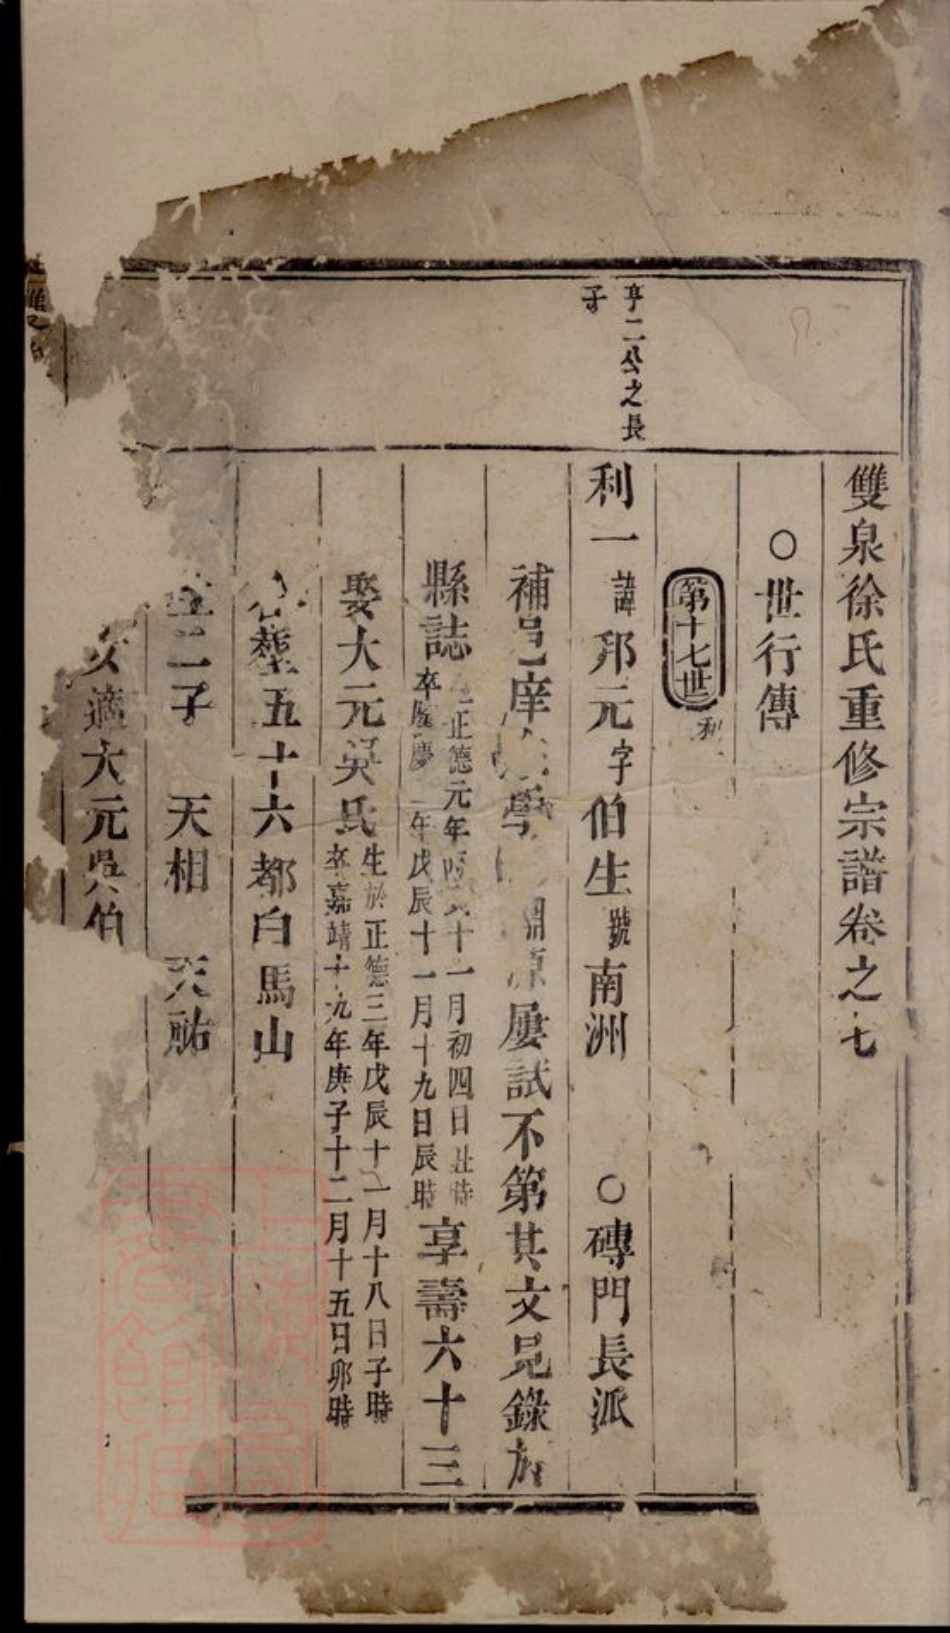 雙泉徐氏重修宗譜卷之七
○世行傳
第十七世 利
亨二公之長
子
利一 諱邦元 字伯生 號南洲 ○磚門長派
補邑庠 學 淵源屢試不第其文見錄於
縣誌 正德元年 十一月初四日丑時
卒隆慶二年戊辰十一月十九日辰時 享壽六十三
娶大元吳氏 生於正德三年戊辰十二月十八日子時
卒嘉靖十九年庚子十二月十五日卯時
公葬五十六都白馬山
生二子 天相 天祐
女適大元吳伯
雙